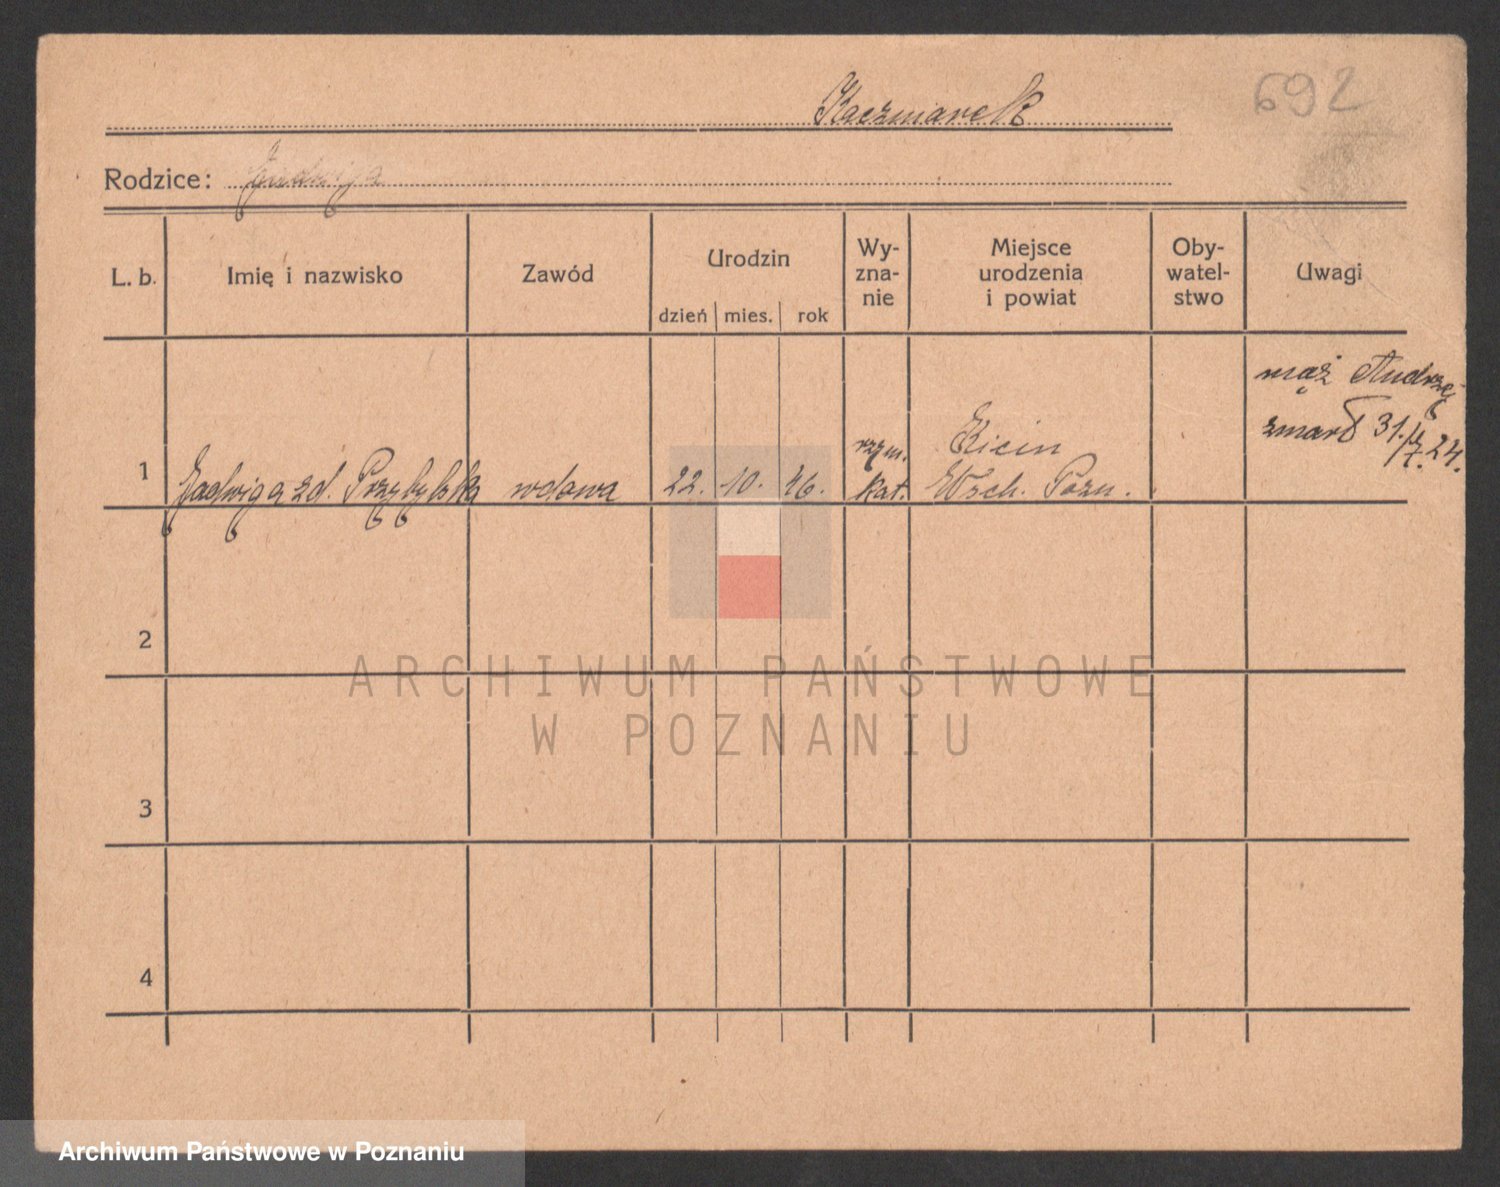 Kaczmarek
692
Rodzice: Jadwiga
L. b.
Imię i nazwisko
Zawód
Urodzin
dzień
mies.
rok
Wy-
zna-
nie
Miejsce
urodzenia
i powiat
Oby-
watel-
stwo
Uwagi
1
Jadwiga zd. Przybylska
wdowa
22.
10.
46.
rzym.
kat.
Kicin
Wsch. Pozn.
mąż Andrzej
zmarł 31./7.24.
2
3
4
ARCHIWUM PAŃSTWOWE
W POZNANIU
Archiwum Państwowe w Poznaniu